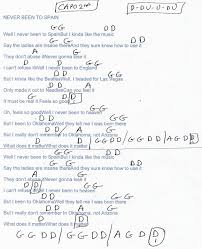 CAPO 2nd D-DU-U-DU
NEVER BEEN TO SPAIN
G G D D
Well I never been to SpainBut I kinda like the music
G G D D
Say the ladies are insane thereAnd they sure know how to use it
A G
They don't abuse itNever gonna lose it
D D
I can't refuse itWell I never been to England
G G D D
But I kinda like the BeatlesWell, I headed for Vegas
G G D D
Only made it out to NeedlesCan you feel it
A G D D
It must be real it Feels so good
G G
Oh, feels so goodWell I never been to heaven
D D G G
But I been to OklahomaWell they tell me I was born there
D D A G
But I really don't remember In Oklahoma, not Arizona
D D
What does it matterWhat does it matter
G G D D
Well I never been to SpainBut I kinda like the music
G G D D
Say the ladies are insane thereAnd they sure know how to use it
A G
They don't abuse itNever gonna lose it
D D
I can't refuse it Never been to heaven
G G
But I been to OklahomaWell they tell me I was born there
D D A G
But I really don't remember In Oklahoma, not Arizona
D D
What does it matterWhat does it matter
GGDD/GGDD/AGDD